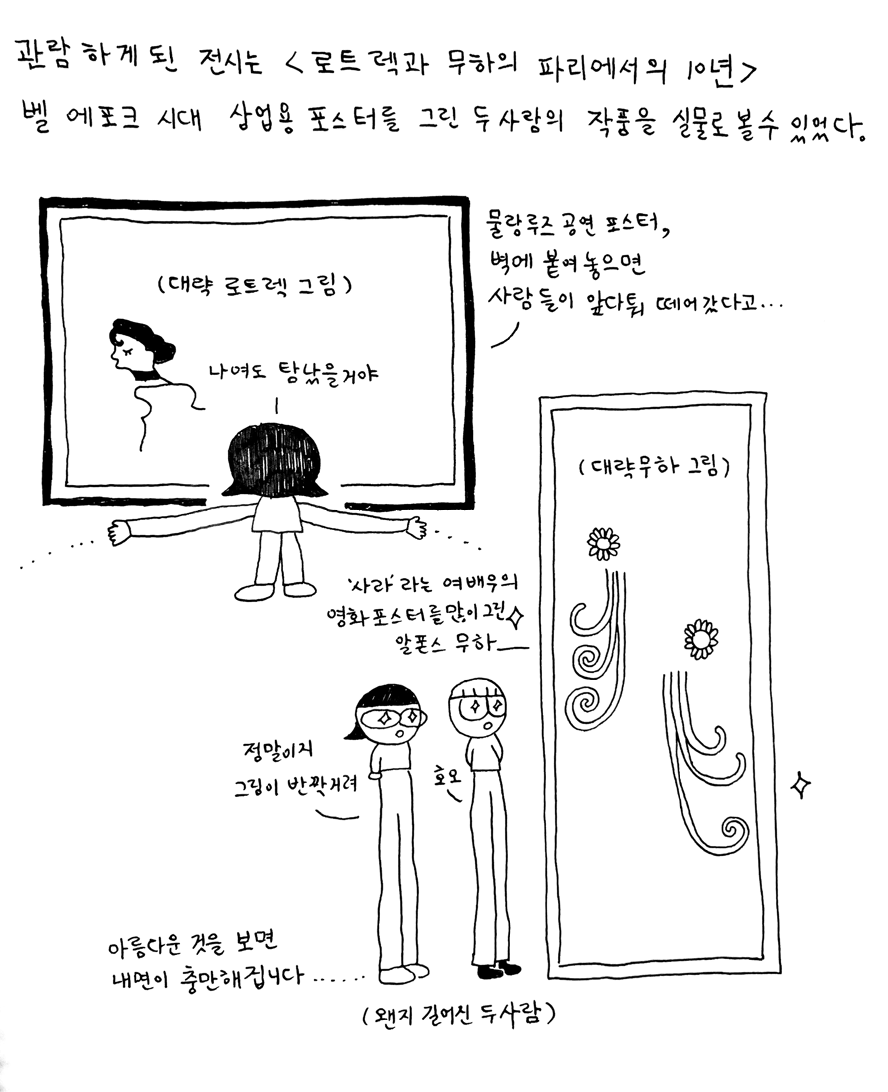 관람하게 된 전시는 <로트렉과 무하의 파리에서의 10년>
벨 에포크 시대 상업용 포스터를 그린 두 사람의 작품을 실물로 볼 수 있었다.
물랑루즈 공연 포스터,
벽에 붙여 놓으면
사람들이 앞다퉈 떼어 갔다고...
(대략 로트렉 그림)
나여도 탐났을거야
(대략 무하 그림)
'사라'라는 여배우의
영화포스터를 많이 그린
알폰스 무하
정말이지
그림이 반짝거려
호오
아름다운 것을 보면
내면이 충만해집니다......
(왠지 길어진 두 사람)